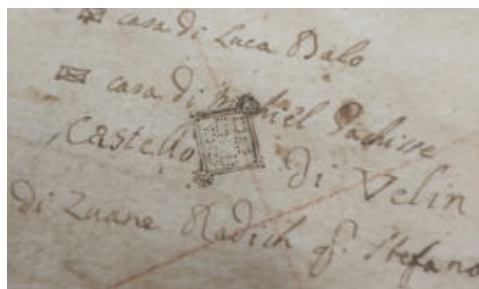 casa di Luca Balo
casa di Michiel
Castello di Velin
di Zuane Radich q. Stefano